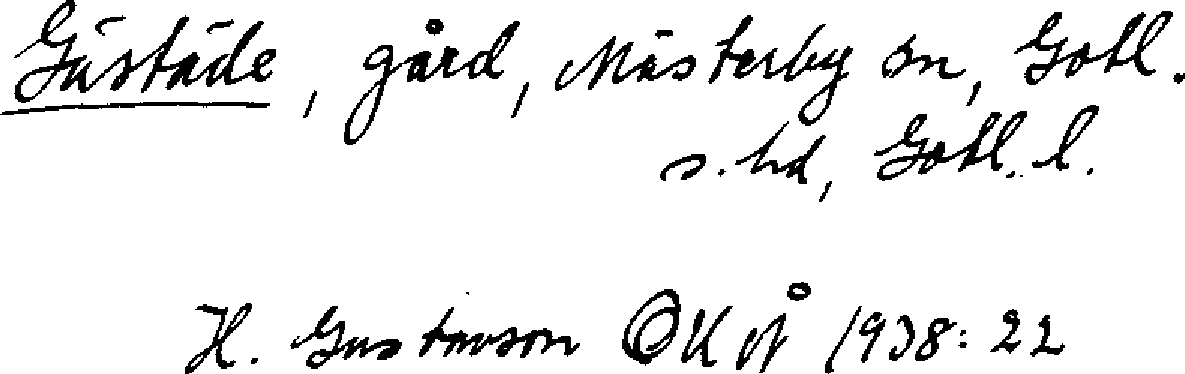 Gästäde, gård, Mästerby sn, Gotl.
s. hd, Gotl. l.
H. Gustavson 1938: 22